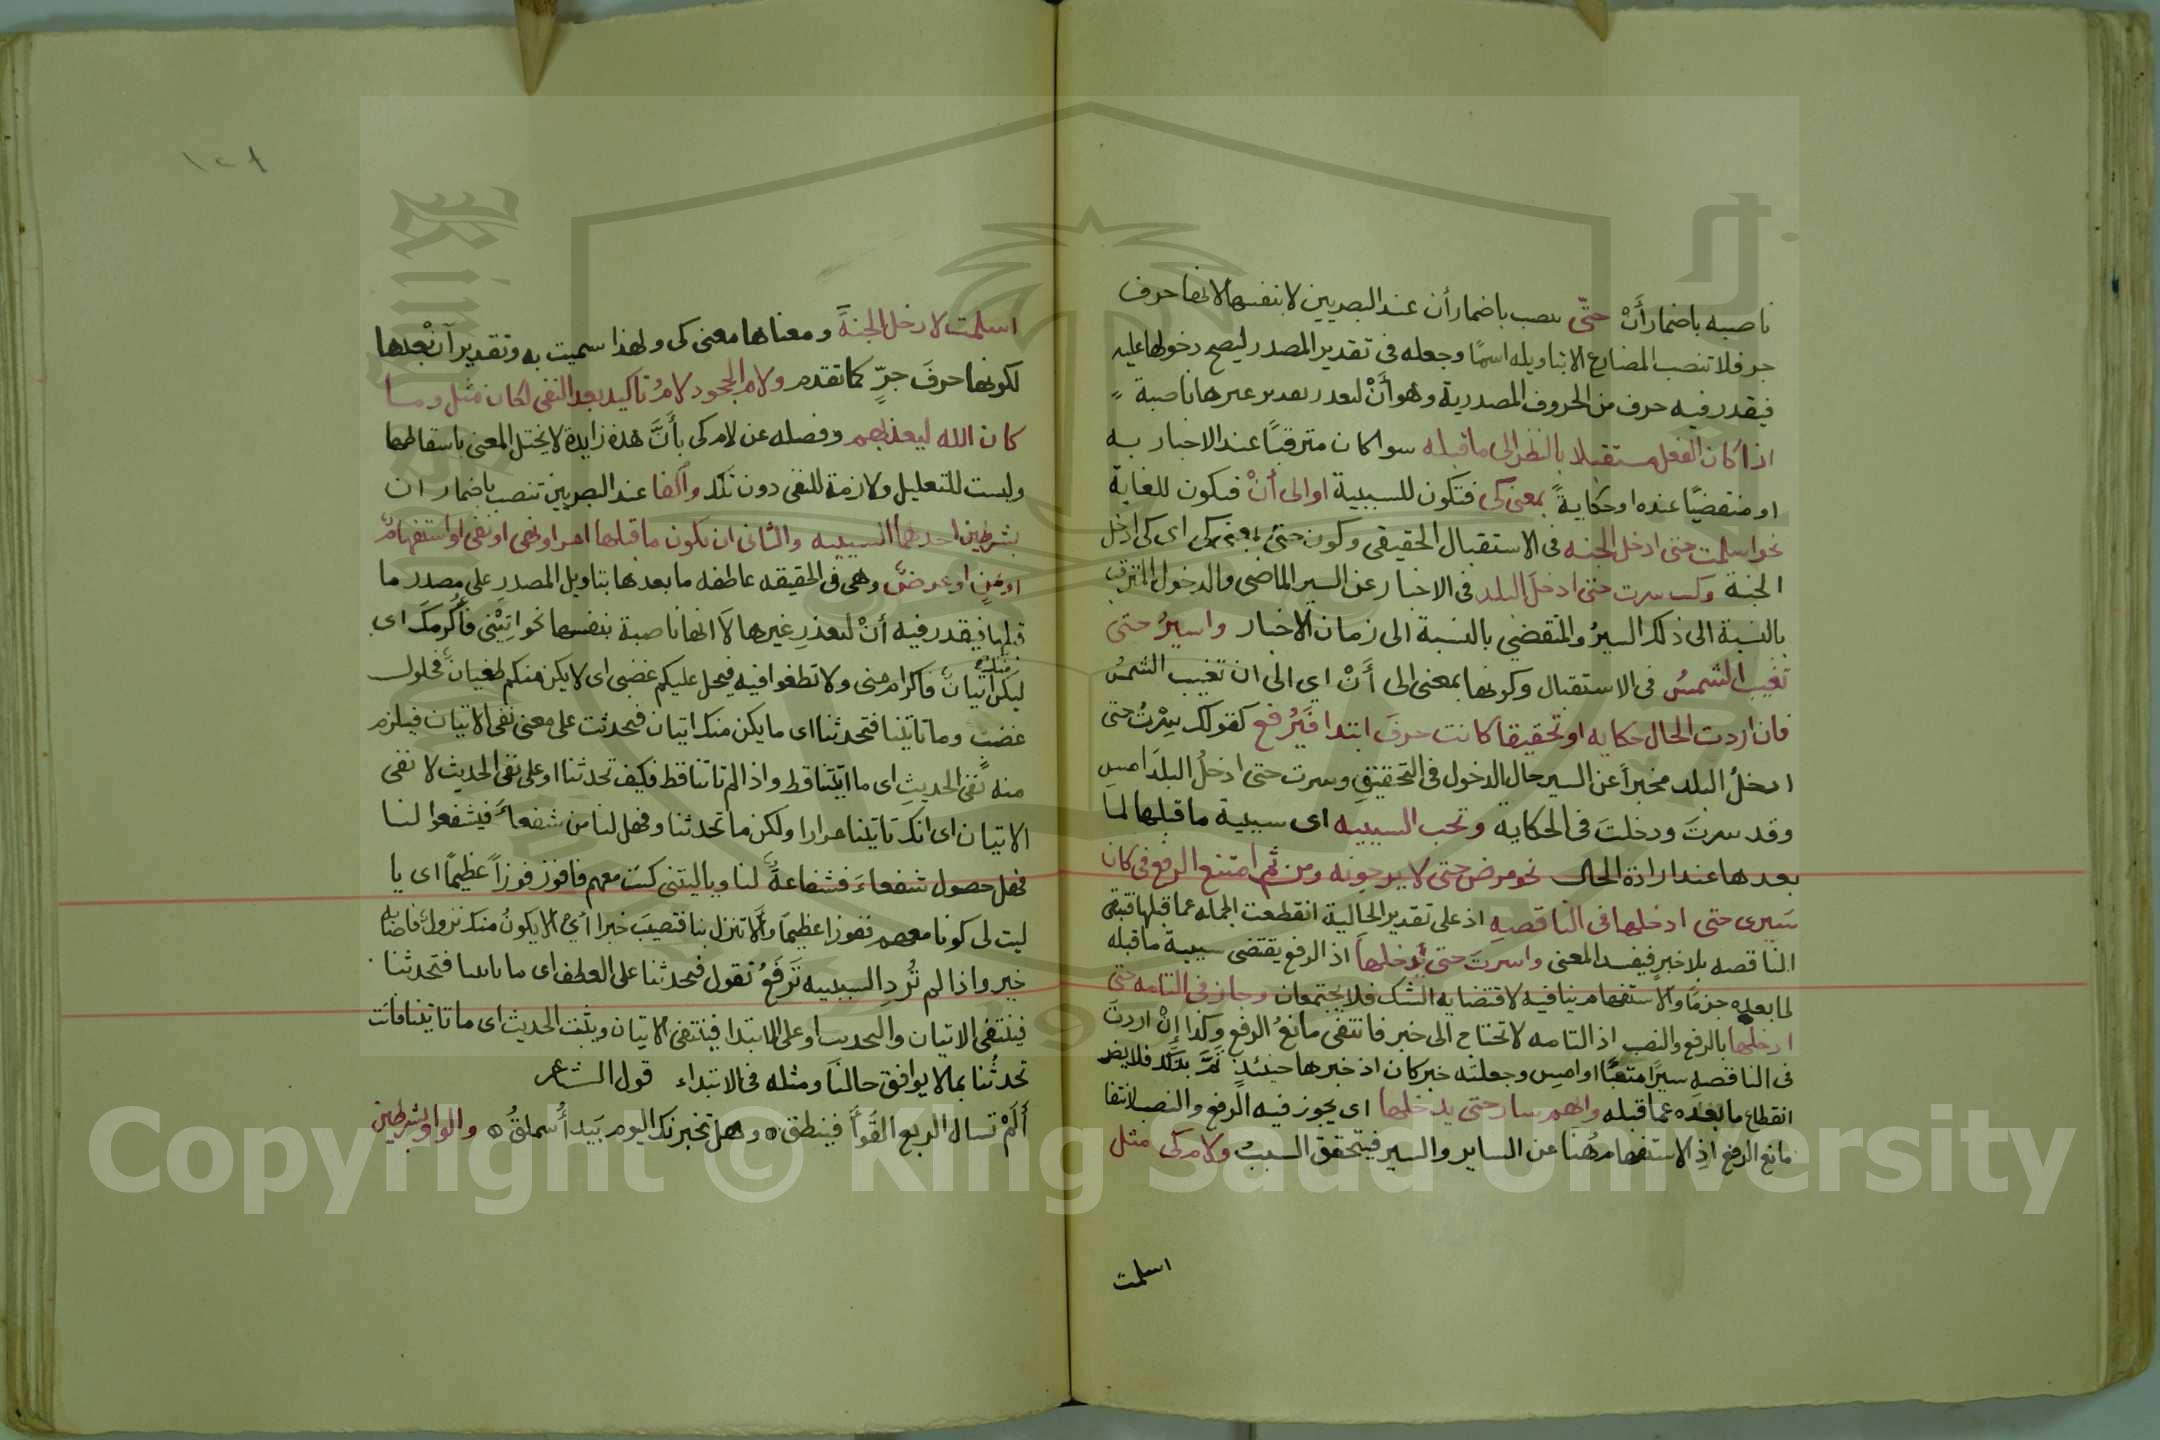 ناصبه باضمار أنْ حتّى ينصب باضمار أن عند البصريين لا بنفسها لانها حرف
جر فلا تنصب المضارع الا بتاويله اسمًا وجعله فى تقدير المصدر ليصح دخولها عليه
فيقدر فيه حرف من الحروف المصدرية وهو أنْ لتعذر تقدير غيرها ناصبة
اذا كان الفعل مستقبلا بالنظر الى ما قبله سوا كان مترقبًا عند الاخبار به
او منقضيًا عنده او حكايةً بمعنى كى فتكون للسببية او الى أنْ فتكون للغاية
نحو اسلمت حتى ادخل الجنه فى الاستقبال الحقيقى وكون حتى بمعنى كى اى كى ادخل
الجنة وكنت سرت حتى ادخلَ البلد فى الاخبار عن السير الماضى والدخول المترقب
بالنسبة الى ذلك السيرُ والمتقضي بالنسبة الى زمان الاخبار واسيرُ حتى
تغيبَ الشمسُ فى الاستقبال وكونها بمعنى الى أَنْ اي الى ان تغيب الشمسُ
فان اردت الحال حكايه او تحقيقا كانت حرفَ ابتدا فَيُرفع كقولك سِرْتُ حتى
ادخلُ البلد مخبراً عن السير حال الدخول فى التحقيقِ وسرت حتى ادخلُ البلدَ امسِ
وقد سرتَ ودخلتَ فى الحكاية وتجب السببيه اى سببية ما قبلها لما
بعدها عند ارادة الحال نحو مرض حتى لا يرجونه ومن ثم امتنع الرفع فى كان
سَيرى حتى ادخلها فى الناقصه اذ على تقدير الحالية انقطعت الجمله عما قبلها فتبقى
الناقصه بلا خبرٍ فيفسد المعنى واسرتَ حتى تدخلها اذ الرفع يقتضى سببية ما قبله
لما بعده جزمًا والاستفهام ينافيه لاقتضايه الشك فلا يجتمعان وجاز فى التامه حتى
ادخلها بالرفع والنصب اذ التامه لا تحتاج الى خبر فانتفى مانعُ الرفع وكذا إنْ اردتَ
فى الناقصه سيرًا متعبًا او امسِ وجعلته خبر كان اذ خبرها حينئذٍ تَمَّ بذلك فلا يضر
انقطاع ما بعده عما قبله وايهم سار حتى يدخلها اى يجوز فيه الرفع والنصب لانتفا
مانع الرفع اذِ الاستفهام هُنَا عن الساير والسير فيتحقق السببُ ولام كى مثل
اسلمت
١٢٨
اسلمت لادخل الجنةَ ومعناها معنى كى ولهذا سميت به وتقدير أنْ بعدها
لكونها حرفَ جرٍّ كما تقدم ولام الجحود لامُ تاكيد بعد النفى لكان مثل وما
كان الله ليعذبهم وفصله عن لام كى بأَنَّ هذه زايدة لا يختل المعنى باسقاطها
وليست للتعليل ولازمة للنفى دون تلك والفا عند البصريين تنصب باضمار ان
بشرطين احدهما السببيه والثانى ان يكون ما قبلها امر او نهى او نفى او استفهام
او تمنٍ او عرض وهى فى الحقيقه عاطفه ما بعدها بتاويل المصدر على مصدر ما
قبلها فيقدر فيه أنْ لتعذرِ غيرها لا انها ناصبة بنفسها نحو اتيِتْنى فأُكرمكَ اى
ليكن منك اتيانٌ فاكرام منى ولا تطغوا فيه فيحل عليكم غضبى اى لا يكن منكم طغيانٌ فحلول
غضبٍ وما تاتينا فتحدثنا اى ما يكن منك اتيان فتحدثت على معنى نفى الاتيان فيلزم
منه نفىُ الحديثِ اى ما اتيتنا قط واذا لم تاتنا قط فكيف تحدثنا او على نفى الحديث لا نفى
الاتيان اى انك تاتينا مرارا ولكن ما تحدثنا وفهل لنا من شفعاءَ فيشفعوا لنا
فهل حصول شفعاءَ فشفاعةٌ لنا ويا ليتنى كنت معهم فافوز فوزاً عظيمًا اى يا
ليت لى كونا معهم ففوزا عظيمًا وألا تنزل بنا فتصيبَ خيرا أى الا يكونُ منك نزولٌ فاصابه
خير واذا لم تُردِ السببيه تَرفَعُ تقول فتحدثنا على العطف اى ما تاتينا فتحدثنا
فينتفى الاتيان والتحديث او على الابتدا فينتفى الاتيان ويثبت الحديث اى ما تاتينا فانت
تحدثُنا بما لا يوافق حالنا ومثله فى الابتداء قول الشاعر
أَلَمْ تسال الربع القَوآَ فينطق ٥ وهل تخبرنك اليوم بَيدآُ سملقُ ٥ والواو بشرطين
Copyright © King Saud University